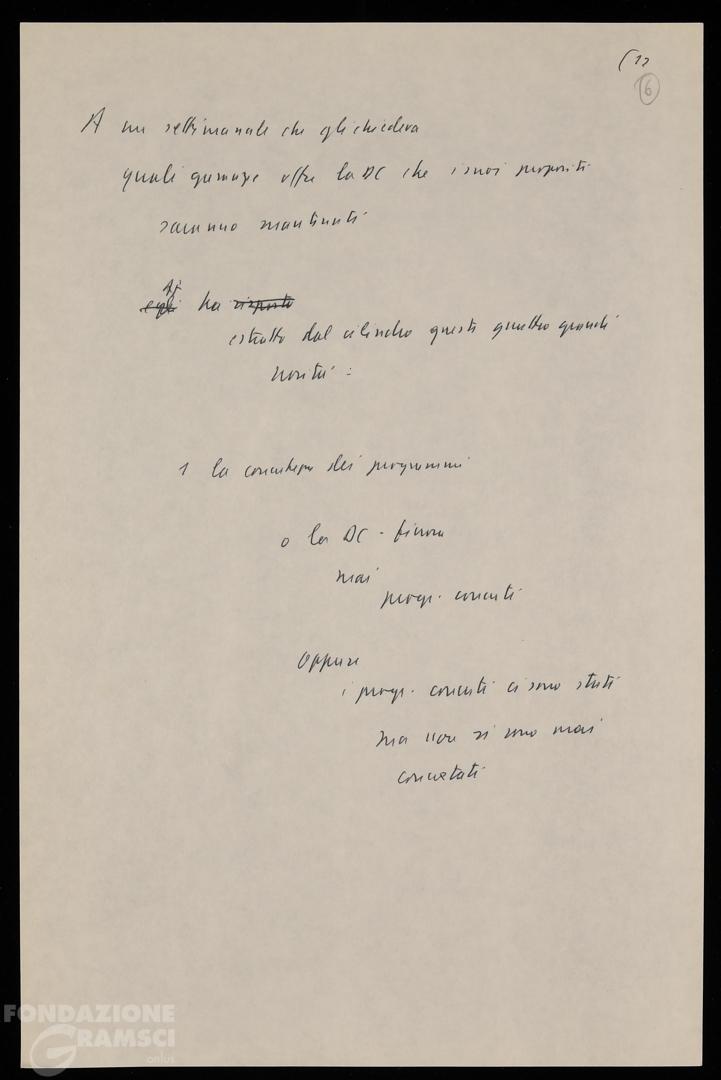 (12
6
A un settimanale che gli chiedeva
quali garanzie offre la DC che i suoi propositi
saranno mantenuti
egli ha risposto
estratto dal cilindro questi quattro grandi
novità:
1 la concretezza dei programmi
o la DC - finora
mai
progr. concreti
oppure
i progr. concreti ci sono stati
ma non si sono mai
concretati
FONDAZIONE
GRAMSCI
onlus